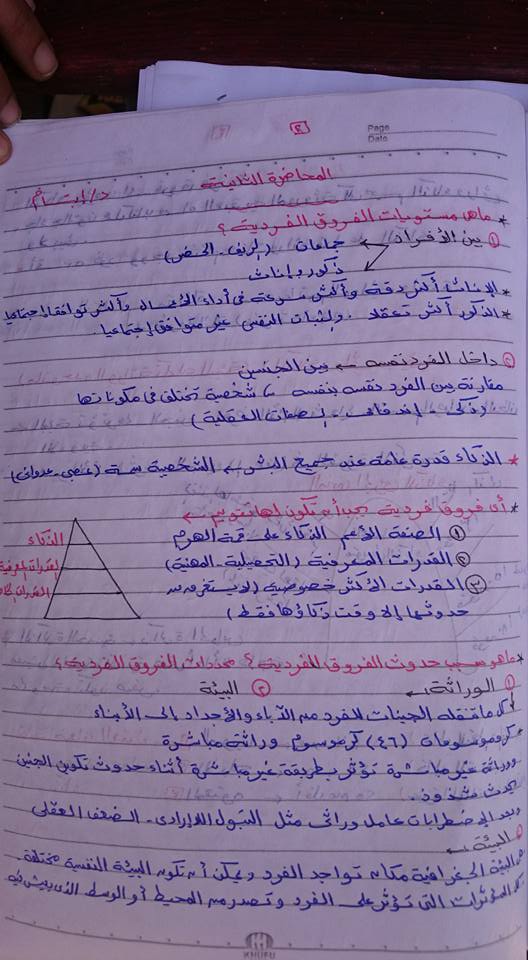 Page
Date
[٢]
المحاضرة الثانية
* ماهى مستويات الفروق الفردية؟
① بين الأفراد ← جماعات (الريف - الحضر)
ذكور وإناث
* الإناث أكثر دقة وأكثر سرعة فى أداء الأعمال وأكثر توافقا إجتماعيا
* الذكور أكثر تعقلا وإثبات النفس غير متوافق إجتماعيا.
② داخل الفرد نفسه ← بين الجنسين
مقارنة بين الفرد نفسه بنفسه شخصية تختلف فى مكوناتها
(ذكى - الصفات العقلية)
* الذكاء قدرة عامة عند جميع البشر ← الشخصية سمة (عصبى - عدوانى)
* أى فروق فردية يجب أن تكون لها تقويم ←
① الصفة الأعم الذكاء على قمة الهرم
② القدرات المعرفية (التحصيلية - المهنية)
③ القدرات الأكثر خصوصية (لا يستغرق من
حدوثها إلا وقت ذكاؤها فقط)
الذكاء
القدرات المعرفية
القدرات
* ماهو سبب حدوث الفروق الفردية؟ محددات الفروق الفردية؟
① الوراثة ← ② البيئة
كل ما تنقله الجينات للفرد من الآباء والأجداد إلى الأبناء
كروموسومات (٤٦) كرموسوم وراثة مباشرة
ووراثة غير مباشرة تؤثر بطريقة غير مباشرة أثناء حدوث تكوين الجنين
يحدث شذوذ.
وبعد الإضطرابات عامل وراثى مثل التبول اللاإرادى - الضعف العقلى
② البيئة ←
البيئة الجغرافية مكان تواجد الفرد ويمكن أن تكون البيئة النفسية مختلفة
كل المؤثرات التى تؤثر على الفرد وتصدر من المحيط أو الوسط الذى يعيش فيه
KHUFU